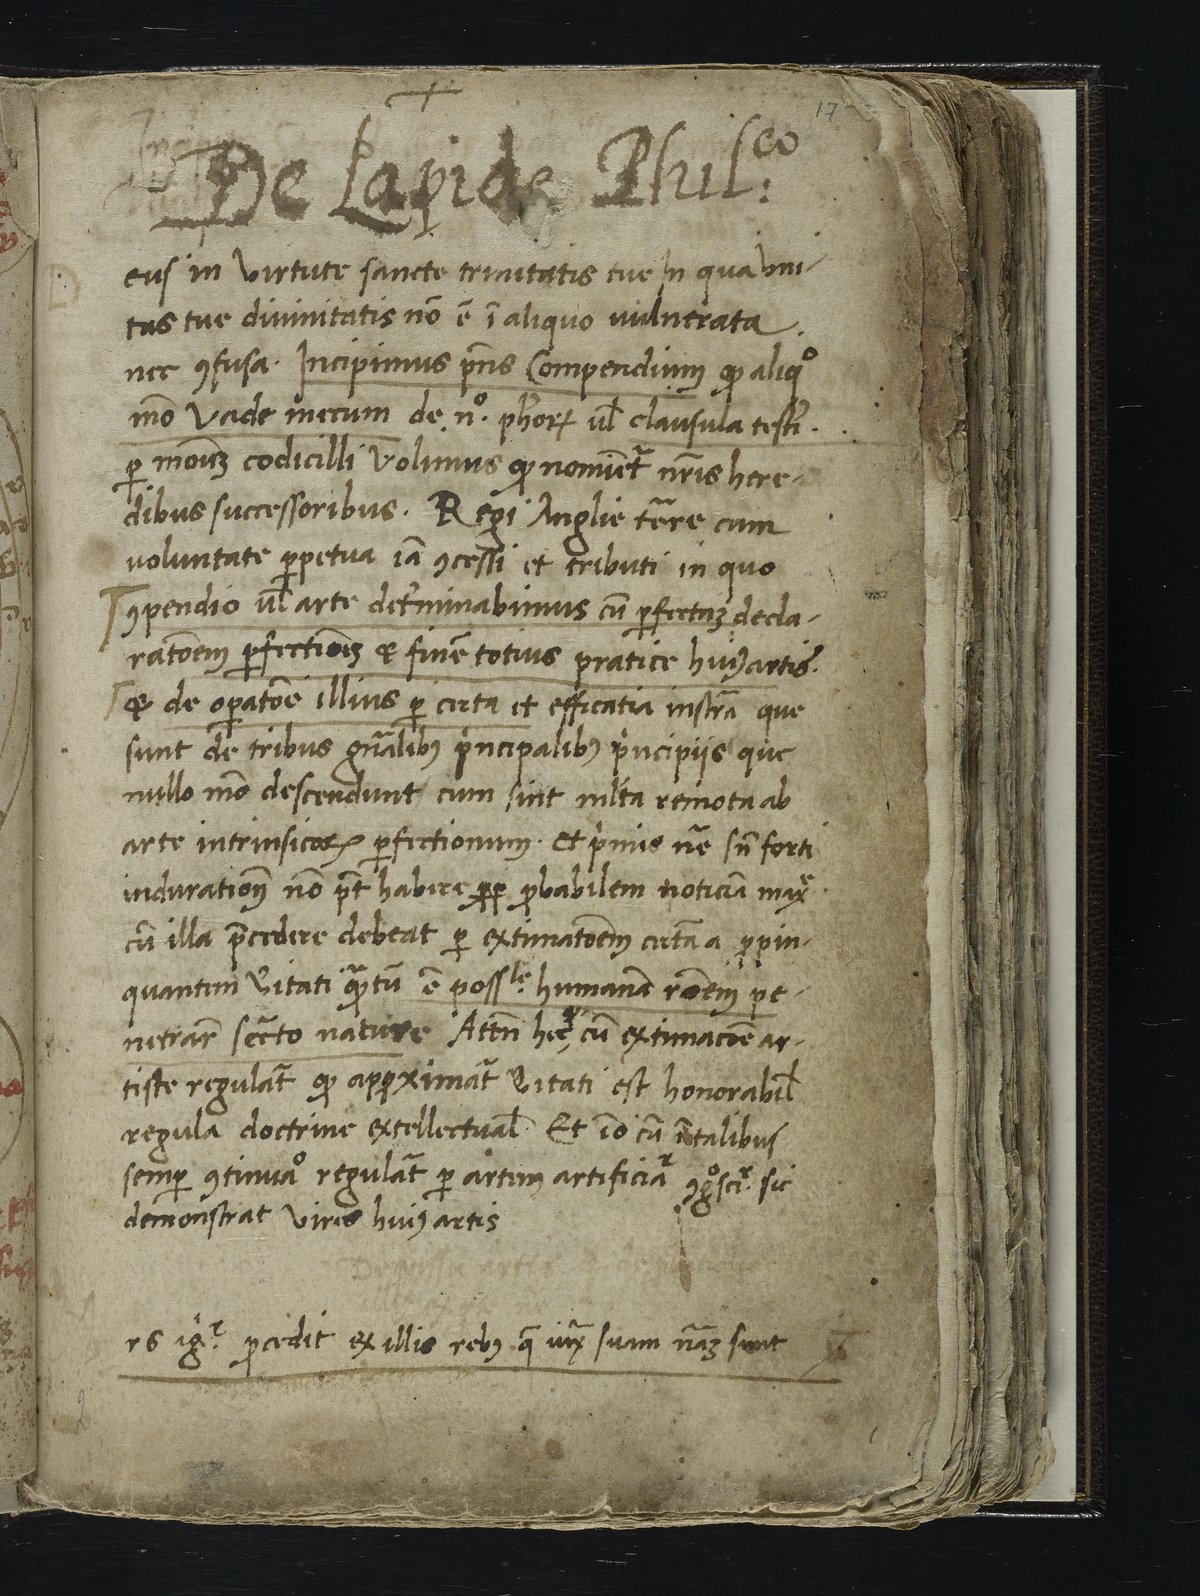 17
De Lapide Phil:co
eus in virtute sancte trinitatis tue in qua vni-
tas tue diuinitatis nõ ẽ ĩ aliquo vulnerata.
nec ꝯfusa. Incipimus pñs Compendium qp aliqº
mõ Vade mecum de nº. ph̃oꝝ ul̃ clausula test̃i.
ꝑ modũ codicilli Volumus qp nominet̃ nr̃is here-
dibus successoribus. Regi Anglie terre cum
voluntate ꝑpetua iã ꝯcessi et tributi in quo
ꝯpendio ul̃ arte det̃minabimus cũ ꝑfectaꝫ decla-
ratõem ꝑfectiõis & finẽ totius pratice huiꝰ artis.
& de oꝑatõe illius ꝑ certa et efficatia instr̃a que
sunt de tribus gñalibꝰ prĩncipalibꝰ prĩncipiis que
nullo mõ descendunt cum sint ml̃ta remota ab
arte intrinsicaꝝ ꝑfectionum. Et primis
induratiõꝫ nõ pñt habere ꝓbabilem noticiã maxe
cũ illa p̃cedere debeat ꝑ extimatõem certã a ꝓpin-
quantem ꝟitati qꝫtũ ẽ possle. humanã rõem pe-
netrar̃ secr̃to nature Attñ hec cũ extimaciõe ar-
tiste regulat̃ qp approximat̃ ꝟitati est honorabil̃
regula doctrine extellectual̃. Et iõ cũ ĩ talibus
semꝑ ꝯtinuaº regulat̃ ꝑ artem artificiar ꝯgºscir. sic
demonstrat vires huiꝰ artis
rs igr. ꝓcedit ex illis rebꝰ q̃ iuxͣ suam nãꝫ sunt